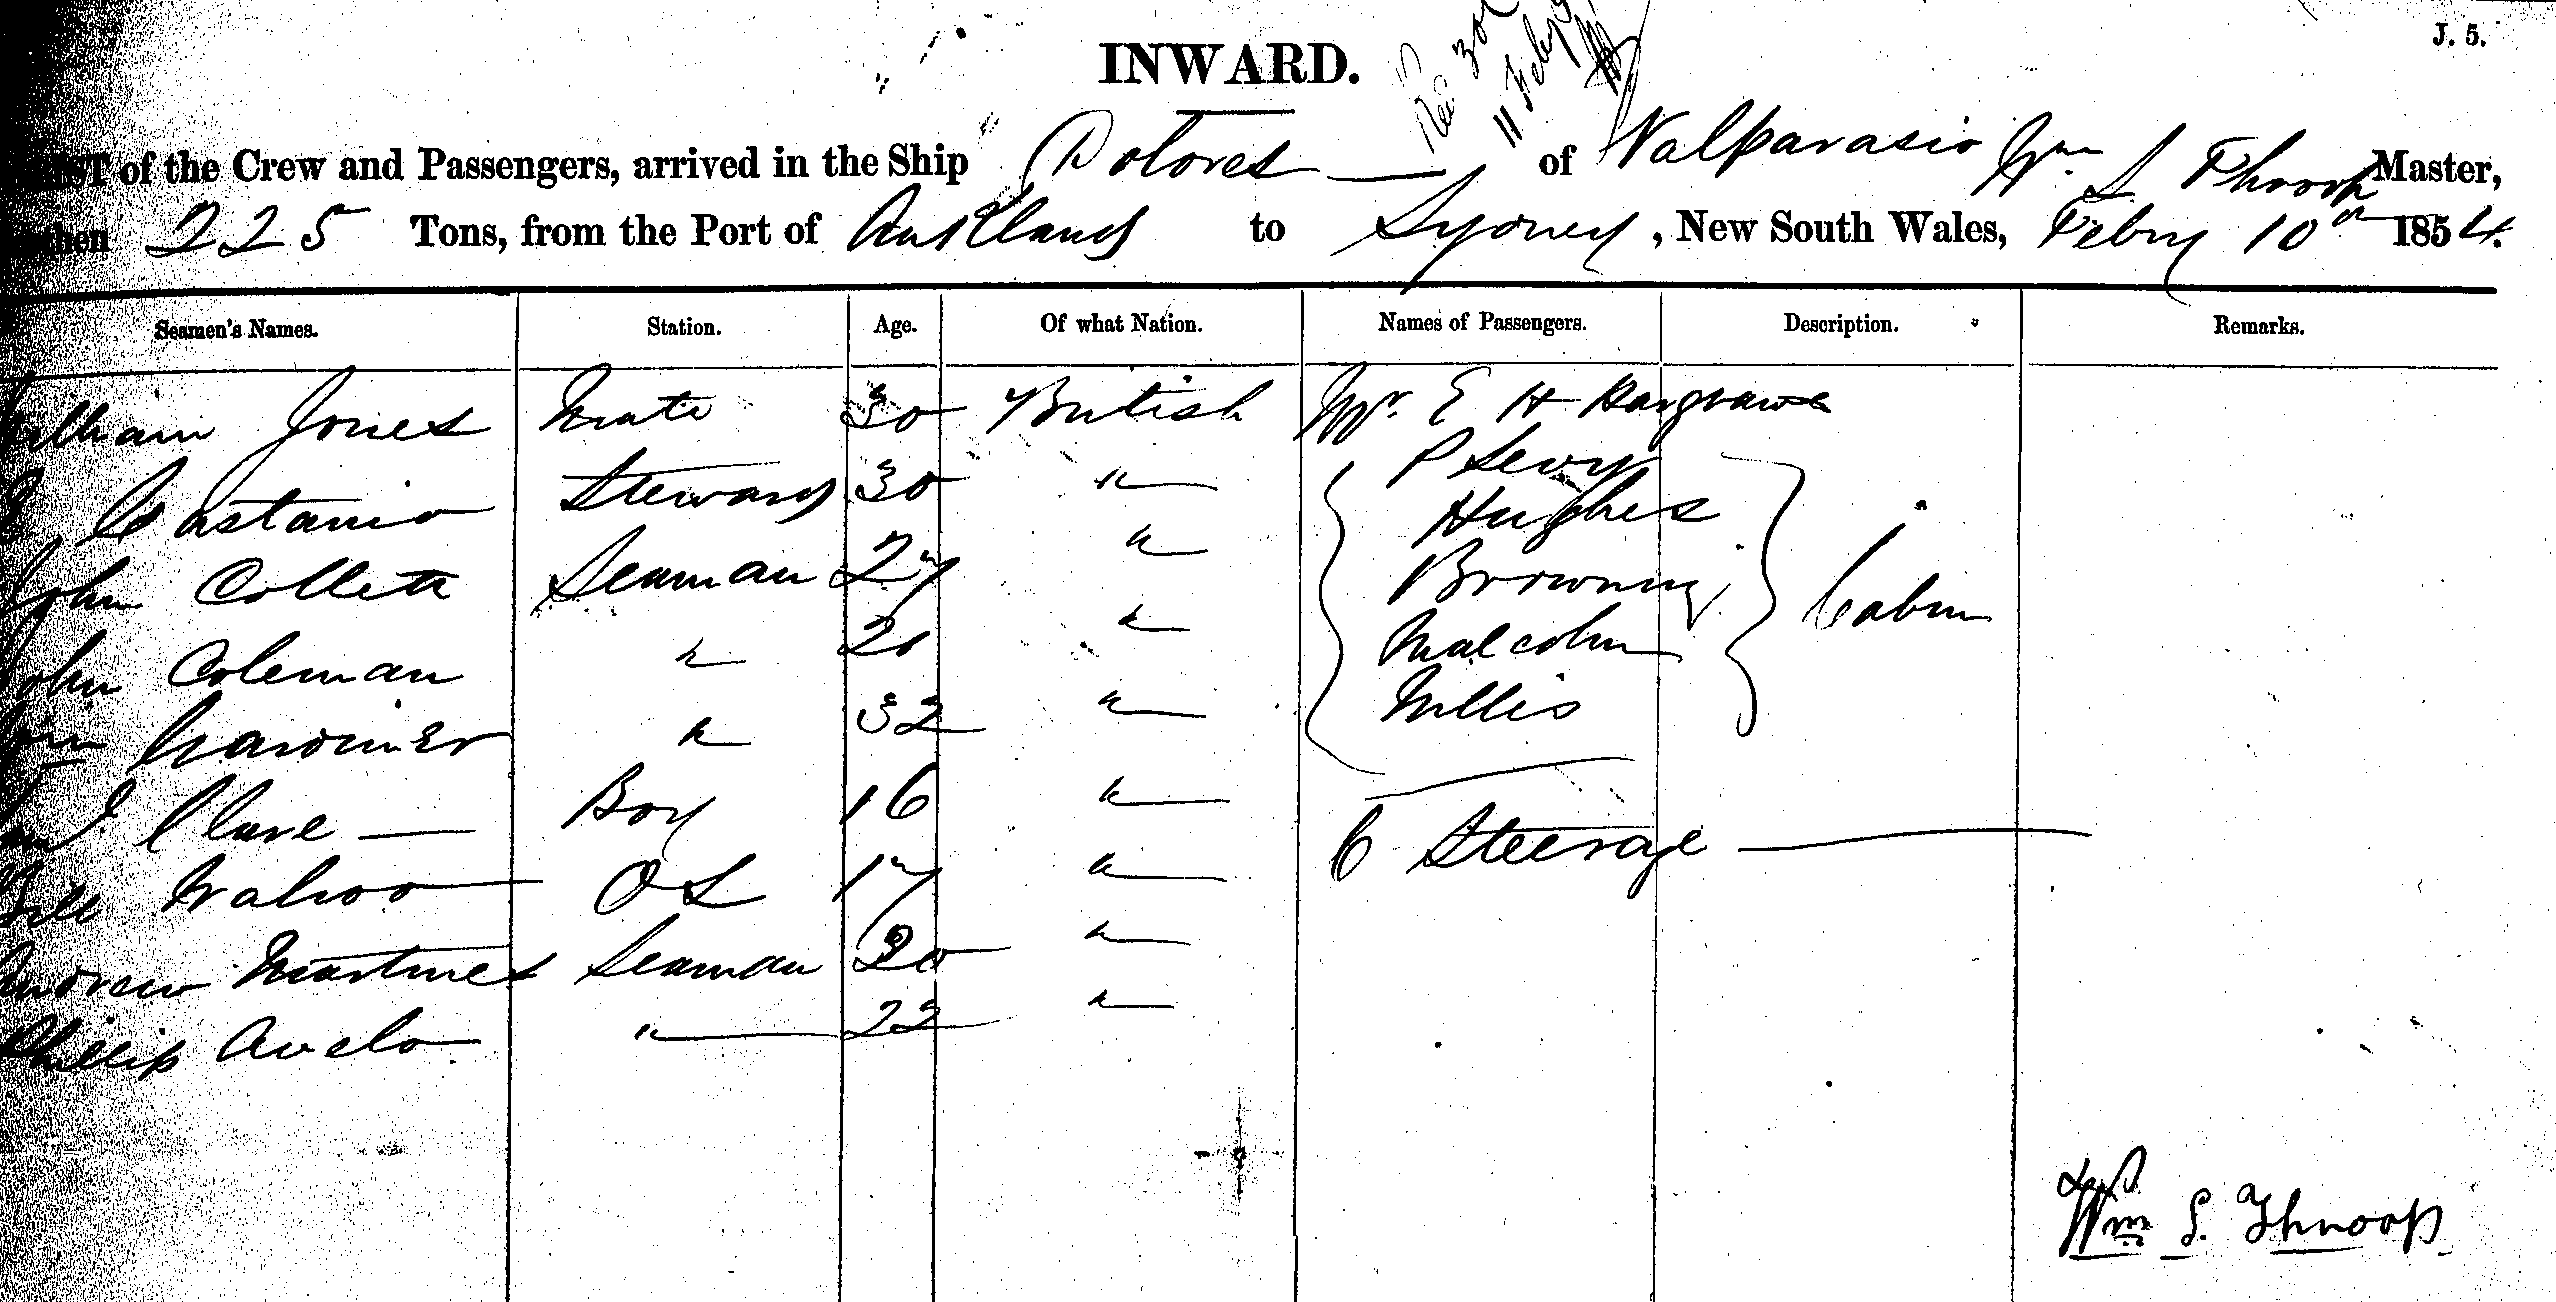 J. 5.
INWARD.
11 Feby
LIST of the Crew and Passengers, arrived in the Ship Dolores of Valparasio Wm S Throop Master,
Burthen 225 Tons, from the Port of Auckland to Sydney, New South Wales, Feby 10th 1854.
Seamen's Names. Station. Age. Of what Nation. Names of Passengers. Description. Remarks.
William Jones Mate 30 British Mr. E H Hargraves
Castanio Steward 30 " P Levy
John Collett Seaman 27 " Hughes
John Coleman " 20 " Browning Cabin
Gardiner " 32 " Malcolm
Clare Boy 16 " Willis
Bill Wahoo OS 17 " 6 Steerage
Andrew Martines Seaman 20 "
Phillip Avelo " 22 "
Wm S. Throop